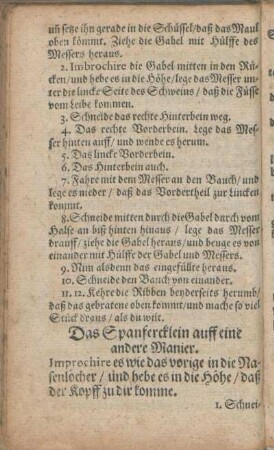 uñ setze ihn gerade in die Schüssel/daß das Maul
oben kömmt. Ziehe die Gabel mit Hülffe des
Messers heraus.
2. Imbrochire die Gabel mitten in den Rü-
cken/und hebe es in die Höhe/lege das Messer un-
ter die lincke Seite des Schweins / daß die Füsse
vom Leibe kommen.
3. Schneide das rechte Hinterbein weg.
4. Das rechte Vorderbein. Lege das Mes-
ser hinten auff/ und wende es herum.
5. Das lincke Vorderbein.
6. Das Hinterbein auch.
7. Fahre mit dem Messer an den Bauch/ und
lege es nieder / daß das Vordertheil zur Lincken
kommt.
8. Schneide mitten durch die Gabel durch vom
Halse an biß hinten hinaus / lege das Messer
drauff/ ziehe die Gabel heraus/ und beuge es von
einander mit Hülffe der Gabel und Messers.
9. Nim alsdenn das eingefüllte heraus.
10. Schneide den Bauch von einander.
11. 12. Kehre die Ribben beyderseits herumb/
daß das gebratene oben kommt/und mache so viel
Stück draus/ als du wilt.
Das Spanfercklein auff eine
andere Manier.
Improchire es wie das vorige in die Na-
senlöcher / und hebe es in die Höhe/ daß
der Kopff zu dir komme.
1. Schnei-